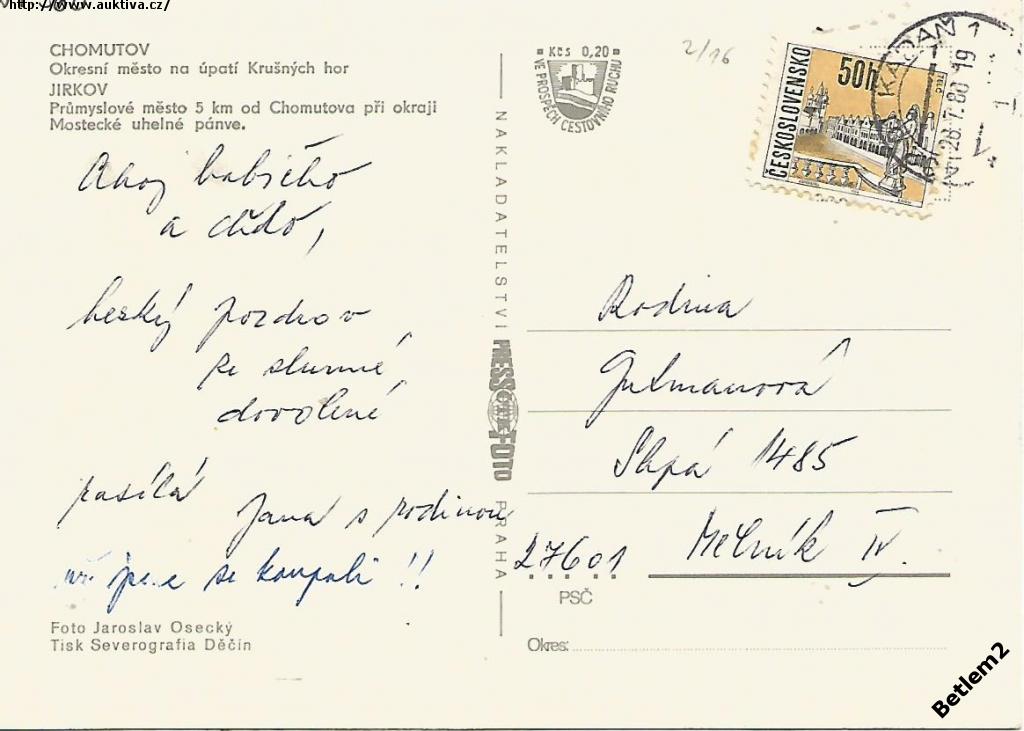 http://www.auktiva.cz/
CHOMUTOV
Okresní město na úpatí Krušných hor
JIRKOV
Průmyslové město 5 km od Chomutova při okraji
Mostecké uhelné pánve.
Ahoj babičko
a dědo,
hezký pozdrav
ze slunné
dovolené
posílá
Jana s rodinou
už jsme se koupali!!
Foto Jaroslav Osecký
Tisk Severografia Děčín
NAKLADATELSTVÍ PRESSFOTO PRAHA
Kčs 0,20
VE PROSPĚCH CESTOVNÍHO RUCHU
2/16
ČESKOSLOVENSKO
50h
TELČ
KADAŇ 1
28.7.80 19
Rodina
Gutmanová
Slepá 1485
27601 Mělník IV.
PSČ
Okres:
Betlem2